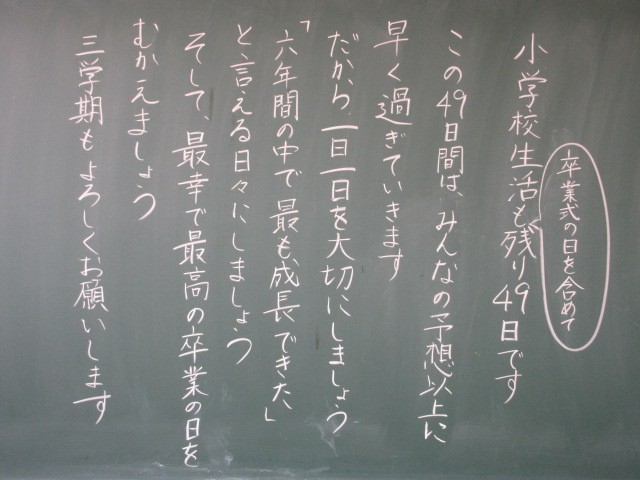 卒業式の日を含めて
小学校生活も残り49日です
この49日間は、みんなの予想以上に
早く過ぎていきます
だから、一日一日を大切にしましょう
「六年間の中で最も成長できた」
と言える日々にしましょう
そして、最幸で最高の卒業の日を
むかえましょう
三学期もよろしくお願いします